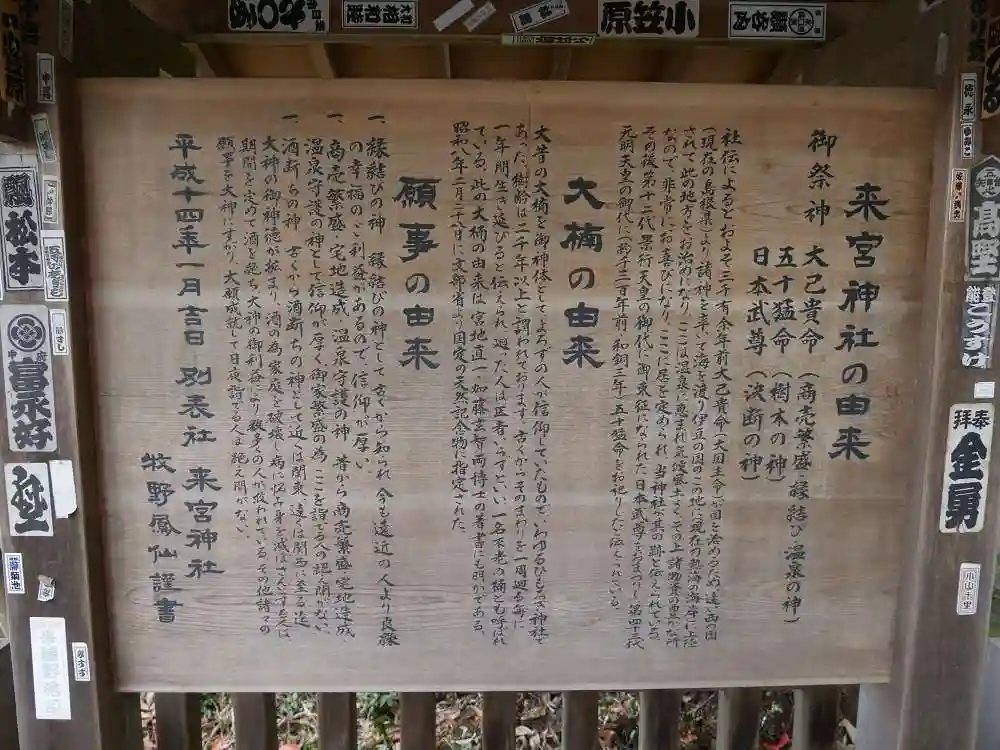 来宮神社の由来
御祭神 大己貴命(商売繁盛 縁結び 温泉の神)
五十猛命(樹木の神)
日本武尊(決断の神)
社伝によるとおよそ二千有余年前大己貴命(大国主命)が国を治めるため遠い西の国
(現在の島根県)より諸神を率て海を渡り伊豆の国のこの地に(現在の熱海の海岸に)上陸
されて此の地方をお治めになり ここは温泉に恵まれ気候風土よくその上諸物資の豊かな所
なので、非常にお喜びになり、ここに居を定められ、当神社が其の跡と伝えられている、
その後第十二代景行天皇の御代に御東征なされた日本武尊をおまつりし第四十三代
元明天皇の御代に(約千三百年前・和銅三年)五十猛命をお祀りしたと伝えている。
大楠の由来
大昔の大楠を御神体としてよろずの人が信仰していたものでいわゆるひもろぎ神社で
あった、樹齢は二千年以上と謂われております、古くからそのまわりを一周廻る毎に
一年間生き延びると伝えられ、廻った人は医者いらずといい、一名不老の楠とも呼ばれ
ている、此の大楠の由来は宮地直一、加藤玄智両博士の著書にも明かである。
昭和八年二月二十八日に文部省より国定の天然記念物に指定された。
願事の由来
一、縁結びの神 縁結びの神として古くから知られ今も遠近の人より良縁
の幸福のご利益があるので、信仰が厚い。
一、商売繁盛 宅地造成 温泉守護の神 昔から商売繁盛宅地造成
温泉守護の神として信仰が厚く御家繁盛の為ここを詣でる人の絶え間がない、
一、酒断ちの神 古くから酒断ちの神として近くは関東、遠くは関西に至る迄
大神の御神徳が拡まり、酒の為、家庭を破壊し病に悩み身を滅ぼさんとする人は
期間を定めて酒を絶ち大神の御利益により数多くの人が救われている、その他諸々の
願事を大神にすがり、大願成就して日夜詣でる人は絶え間がない。
平成十四年一月吉日 別表社 来宮神社
牧野鳳仙謹書
松本
富永好
小笠原
高野
このすけ
奉拝
金男
小山千里
菊池